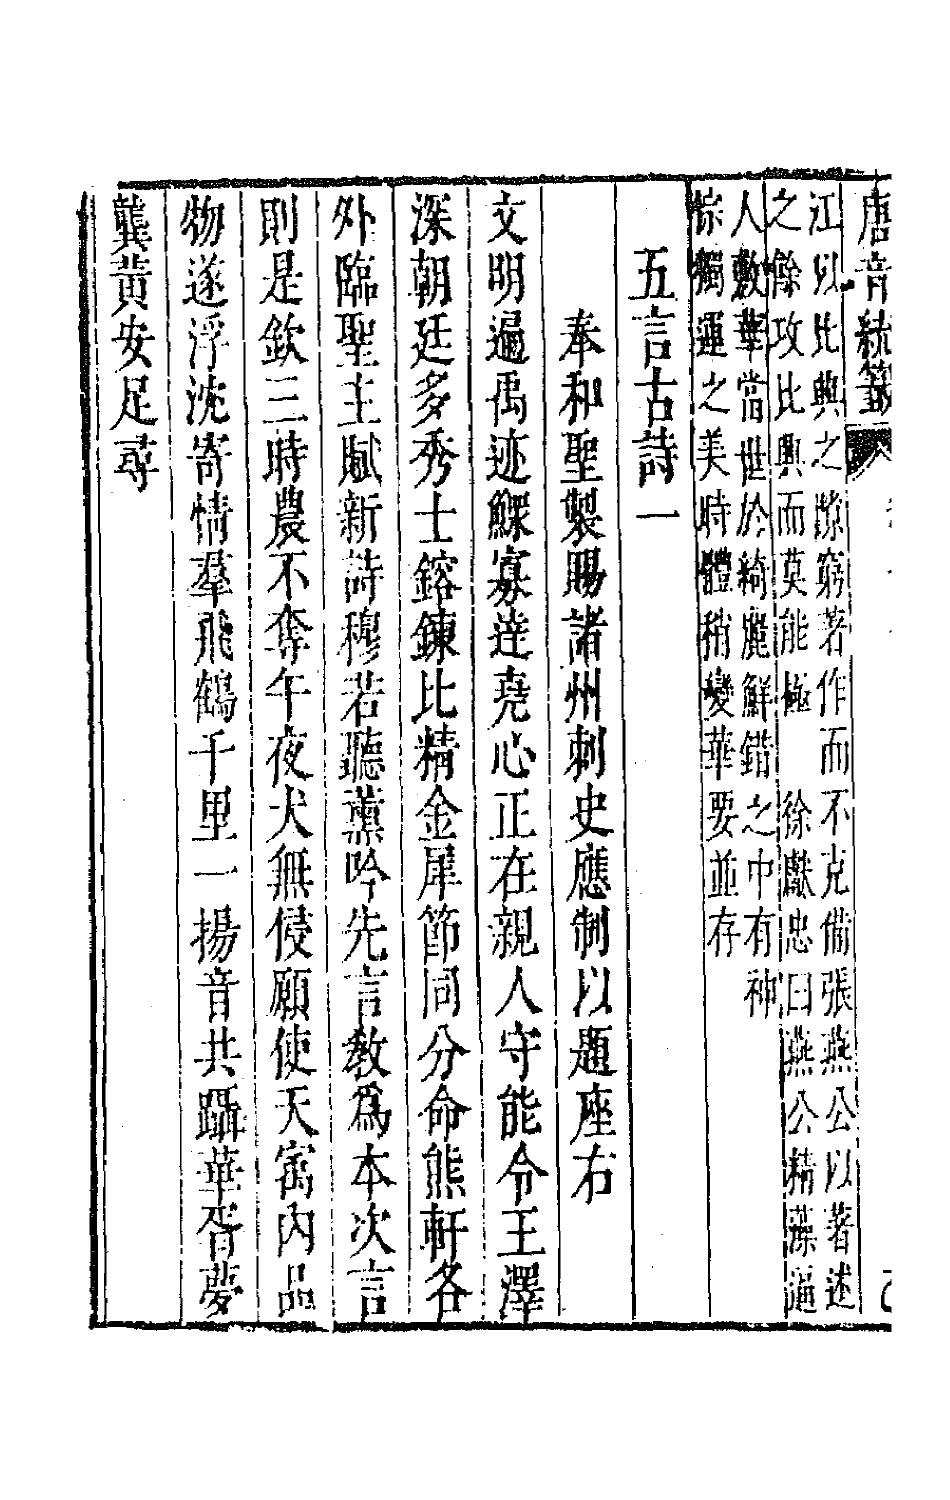 唐音統籖
江以比興之隙窮著作而不克備張燕公以著述
之餘攻比興而莫能極　徐獻忠曰燕公精藻逼
人敷華當世於綺麗鮮錯之中有神
悰獨運之美時體稍變華要並存
五言古詩一
奉和聖製賜諸州刺史應制以題座右
文明遍禹迹鰥寡達堯心正在親人守能令王澤
深朝廷多秀士鎔鍊比精金犀節同分命熊軒各
外臨聖主賦新詩穆若聽薰吟先言教爲本次言
則是欽三時農不奪午夜犬無侵願使天寓內品
物遂浮沈寄情羣飛鶴千里一揚音共躡華胥夢
龔黃安足尋